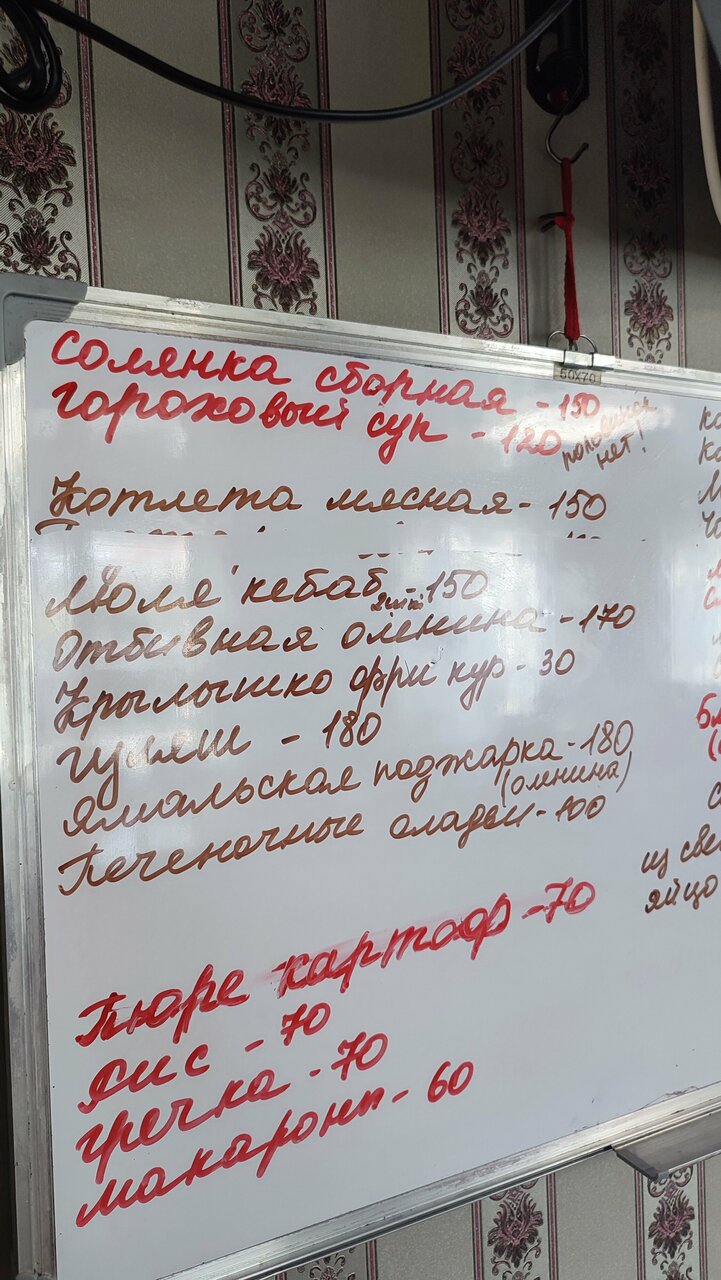 50X70
солянка сборная - 150
гороховый суп - 120
половинок нет!
Котлета мясная - 150
Люля кебаб - 150
Отбивная оленина - 170
Крылышко фри кур - 30
гуляш - 180
Ямальская поджарка - 180
Печеночные оладьи - 100
Пюре картоф - 70
рис - 70
гречка - 70
макароны - 60
из све
яйцо